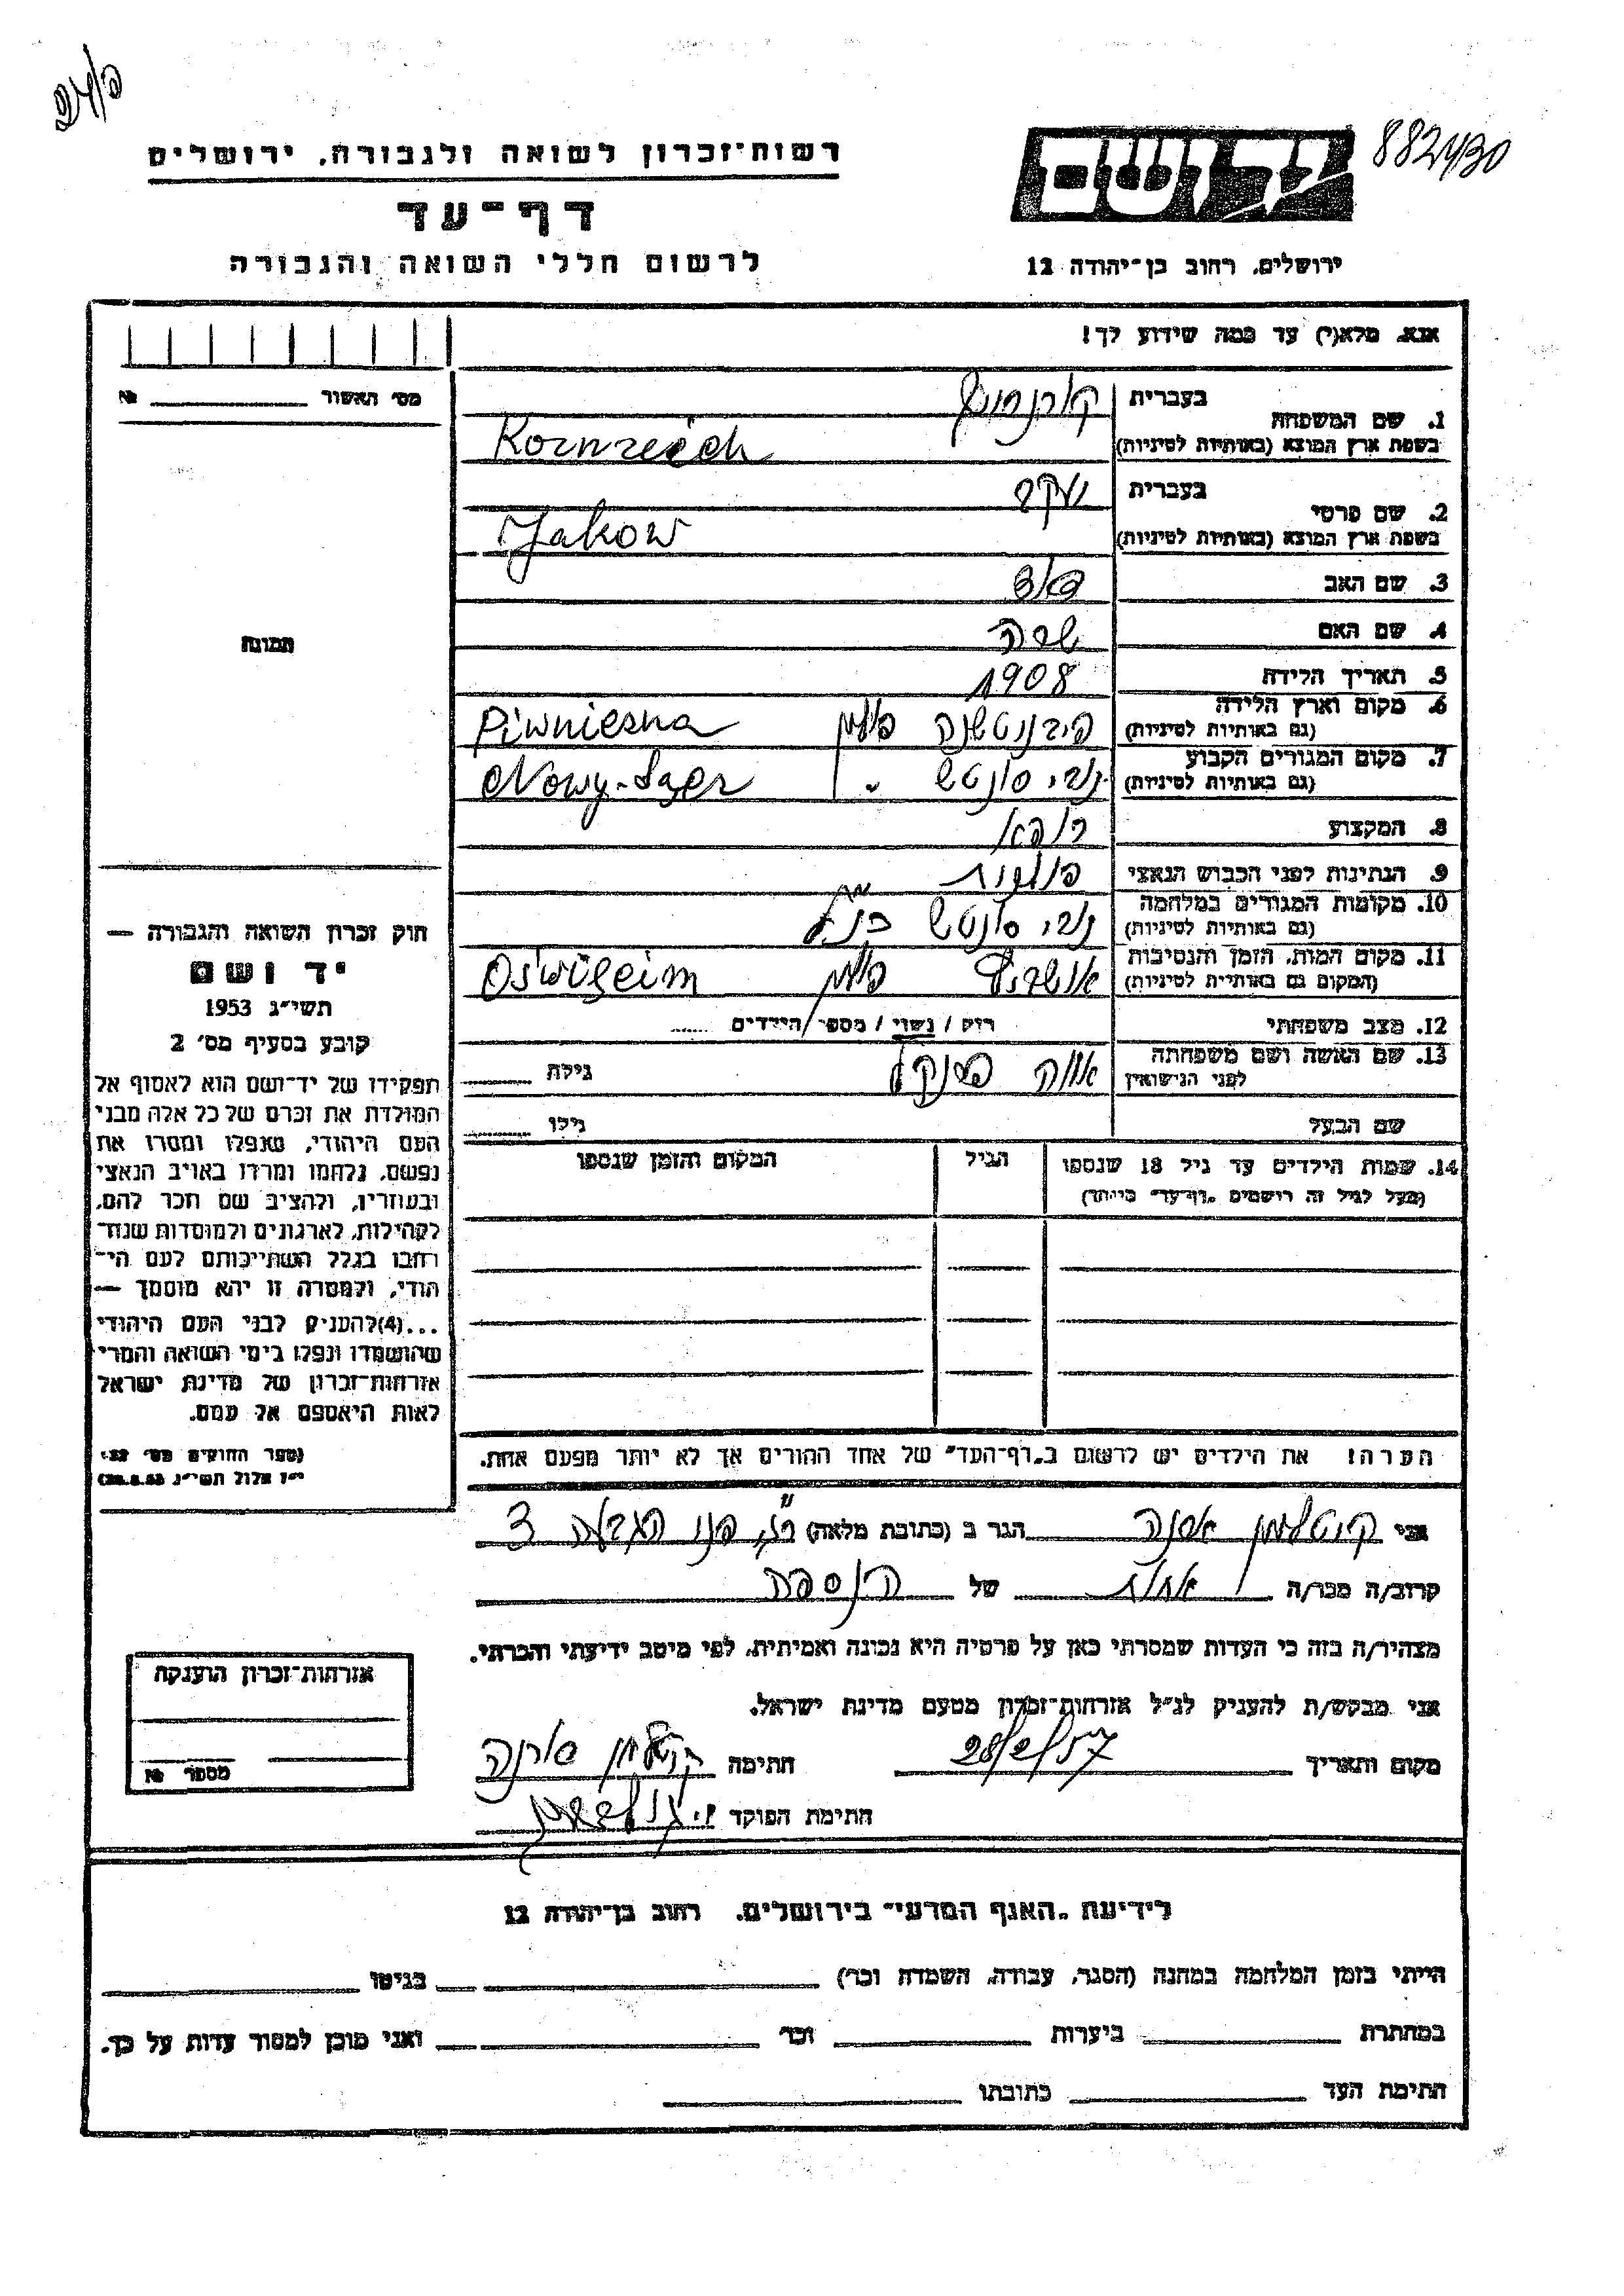 882430
רשות־זכרון לשואה ולגבורה, ירושלים
יד ושם
דף־עד
לרשום חללי השואה והגבורה
ירושלים, רחוב בן־יהודה 12
אנא, מלא(י) עד כמה שידוע לך!
מס׳ האשור № ______
1. שם המשפחה בעברית קורנרייך
בשפת ארץ המוצא (באותיות לטיניות) Kornreich
2. שם פרטי בעברית יעקב
בשפת ארץ המוצא (באותיות לטיניות) Jakow
3. שם האב
4. שם האם שרה
5. תאריך הלידה 1908
6. מקום וארץ הלידה (גם באותיות לטיניות) פיבניטשנה פולין Piwniczna
7. מקום המגורים הקבוע (גם באותיות לטיניות) נובי סונטש " Nowy-Sącz
8. המקצוע
9. הנתינות לפני הכבוש הנאצי פולנית
10. מקומות המגורים במלחמה (גם באותיות לטיניות) נובי סונטש כנ"ל
11. מקום המות, הזמן והנסיבות (המקום גם באותיות לטיניות) אושויץ פולין Oświęcim
12. מצב משפחתי רוק / נשוי / מספר הילדים ......
13. שם האשה ושם משפחתה לפני הנישואין פרנקל גילה ______
שם הבעל גילו ______
תמונה
חוק זכרון השואה והגבורה —
יד ושם
תשי״ג 1953
קובע בסעיף מס׳ 2
תפקידו של יד־ושם הוא לאסוף אל
המולדת את זכרם של כל אלה מבני
העם היהודי, שנפלו ומסרו את
נפשם, נלחמו ומרדו באויב הנאצי
ובעוזריו, ולהציב שם וזכר להם,
לקהילות, לארגונים ולמוסדות שנח־
רבו בגלל השתייכותם לעם הי־
הודי, ולמטרה זו יהא מוסמך —
...(4) להעניק לבני העם היהודי
שהושמדו ונפלו בימי השואה והמרי
אזרחות־זכרון של מדינת ישראל
לאות היאספם אל עמם.
(ספר החוקים מס׳ 132,
י״ז אלול תשי״ג 28.8.53)
14. שמות הילדים עד גיל 18 שנספו הגיל המקום והזמן שנספו
(מעל לגיל זה רושמים "דף־עד" מיוחד)
הערה! את הילדים יש לרשום ב"דף־העד" של אחד ההורים אך לא יותר מפעם אחת.
אני הגר ב (כתובת מלאה) 3
קרוב/ה מכר/ה אחות של הנספה
מצהיר/ה בזה כי העדות שמסרתי כאן על פרטיה היא נכונה ואמיתית, לפי מיטב ידיעתי והכרתי.
אני מבקש/ת להעניק לנ״ל אזרחות־זכרון מטעם מדינת ישראל.
מקום ותאריך 28/2/57 חתימה
חתימת הפוקד
אזרחות־זכרון הוענקה
מספר №
לידיעת "האגף המדעי" בירושלים, רחוב בן־יהודה 12
הייתי בזמן המלחמה במחנה (הסגר, עבודה, השמדה וכו׳) ______ בגיטו ______
במחתרת ______ ביערות ______ וכו׳ ______ ואני מוכן למסור עדות על כך.
חתימת העד ______ כתובתו ______